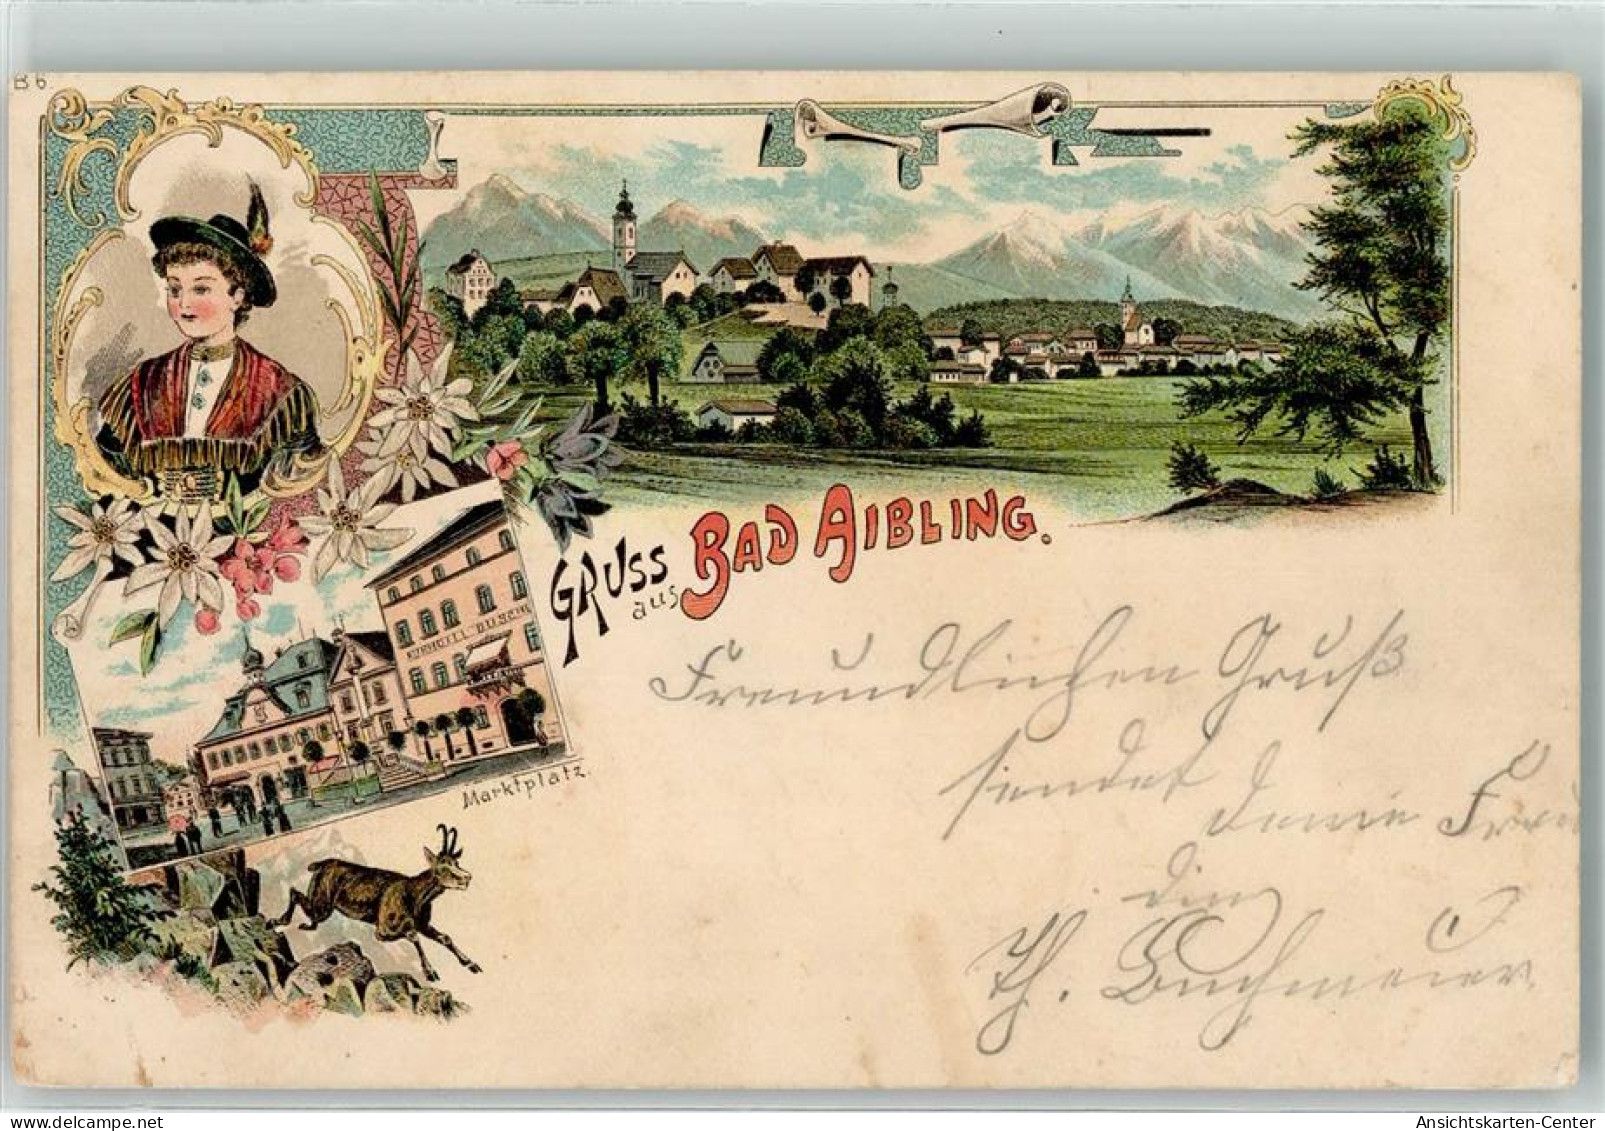 B 6.
GRUSS aus BAD AIBLING.
KURHOTEL DUSCHL
Marktplatz.
Freundlichen Gruß
sendet
deine Freu
din
Th. Buchmeier
Ansichtskarten-Center